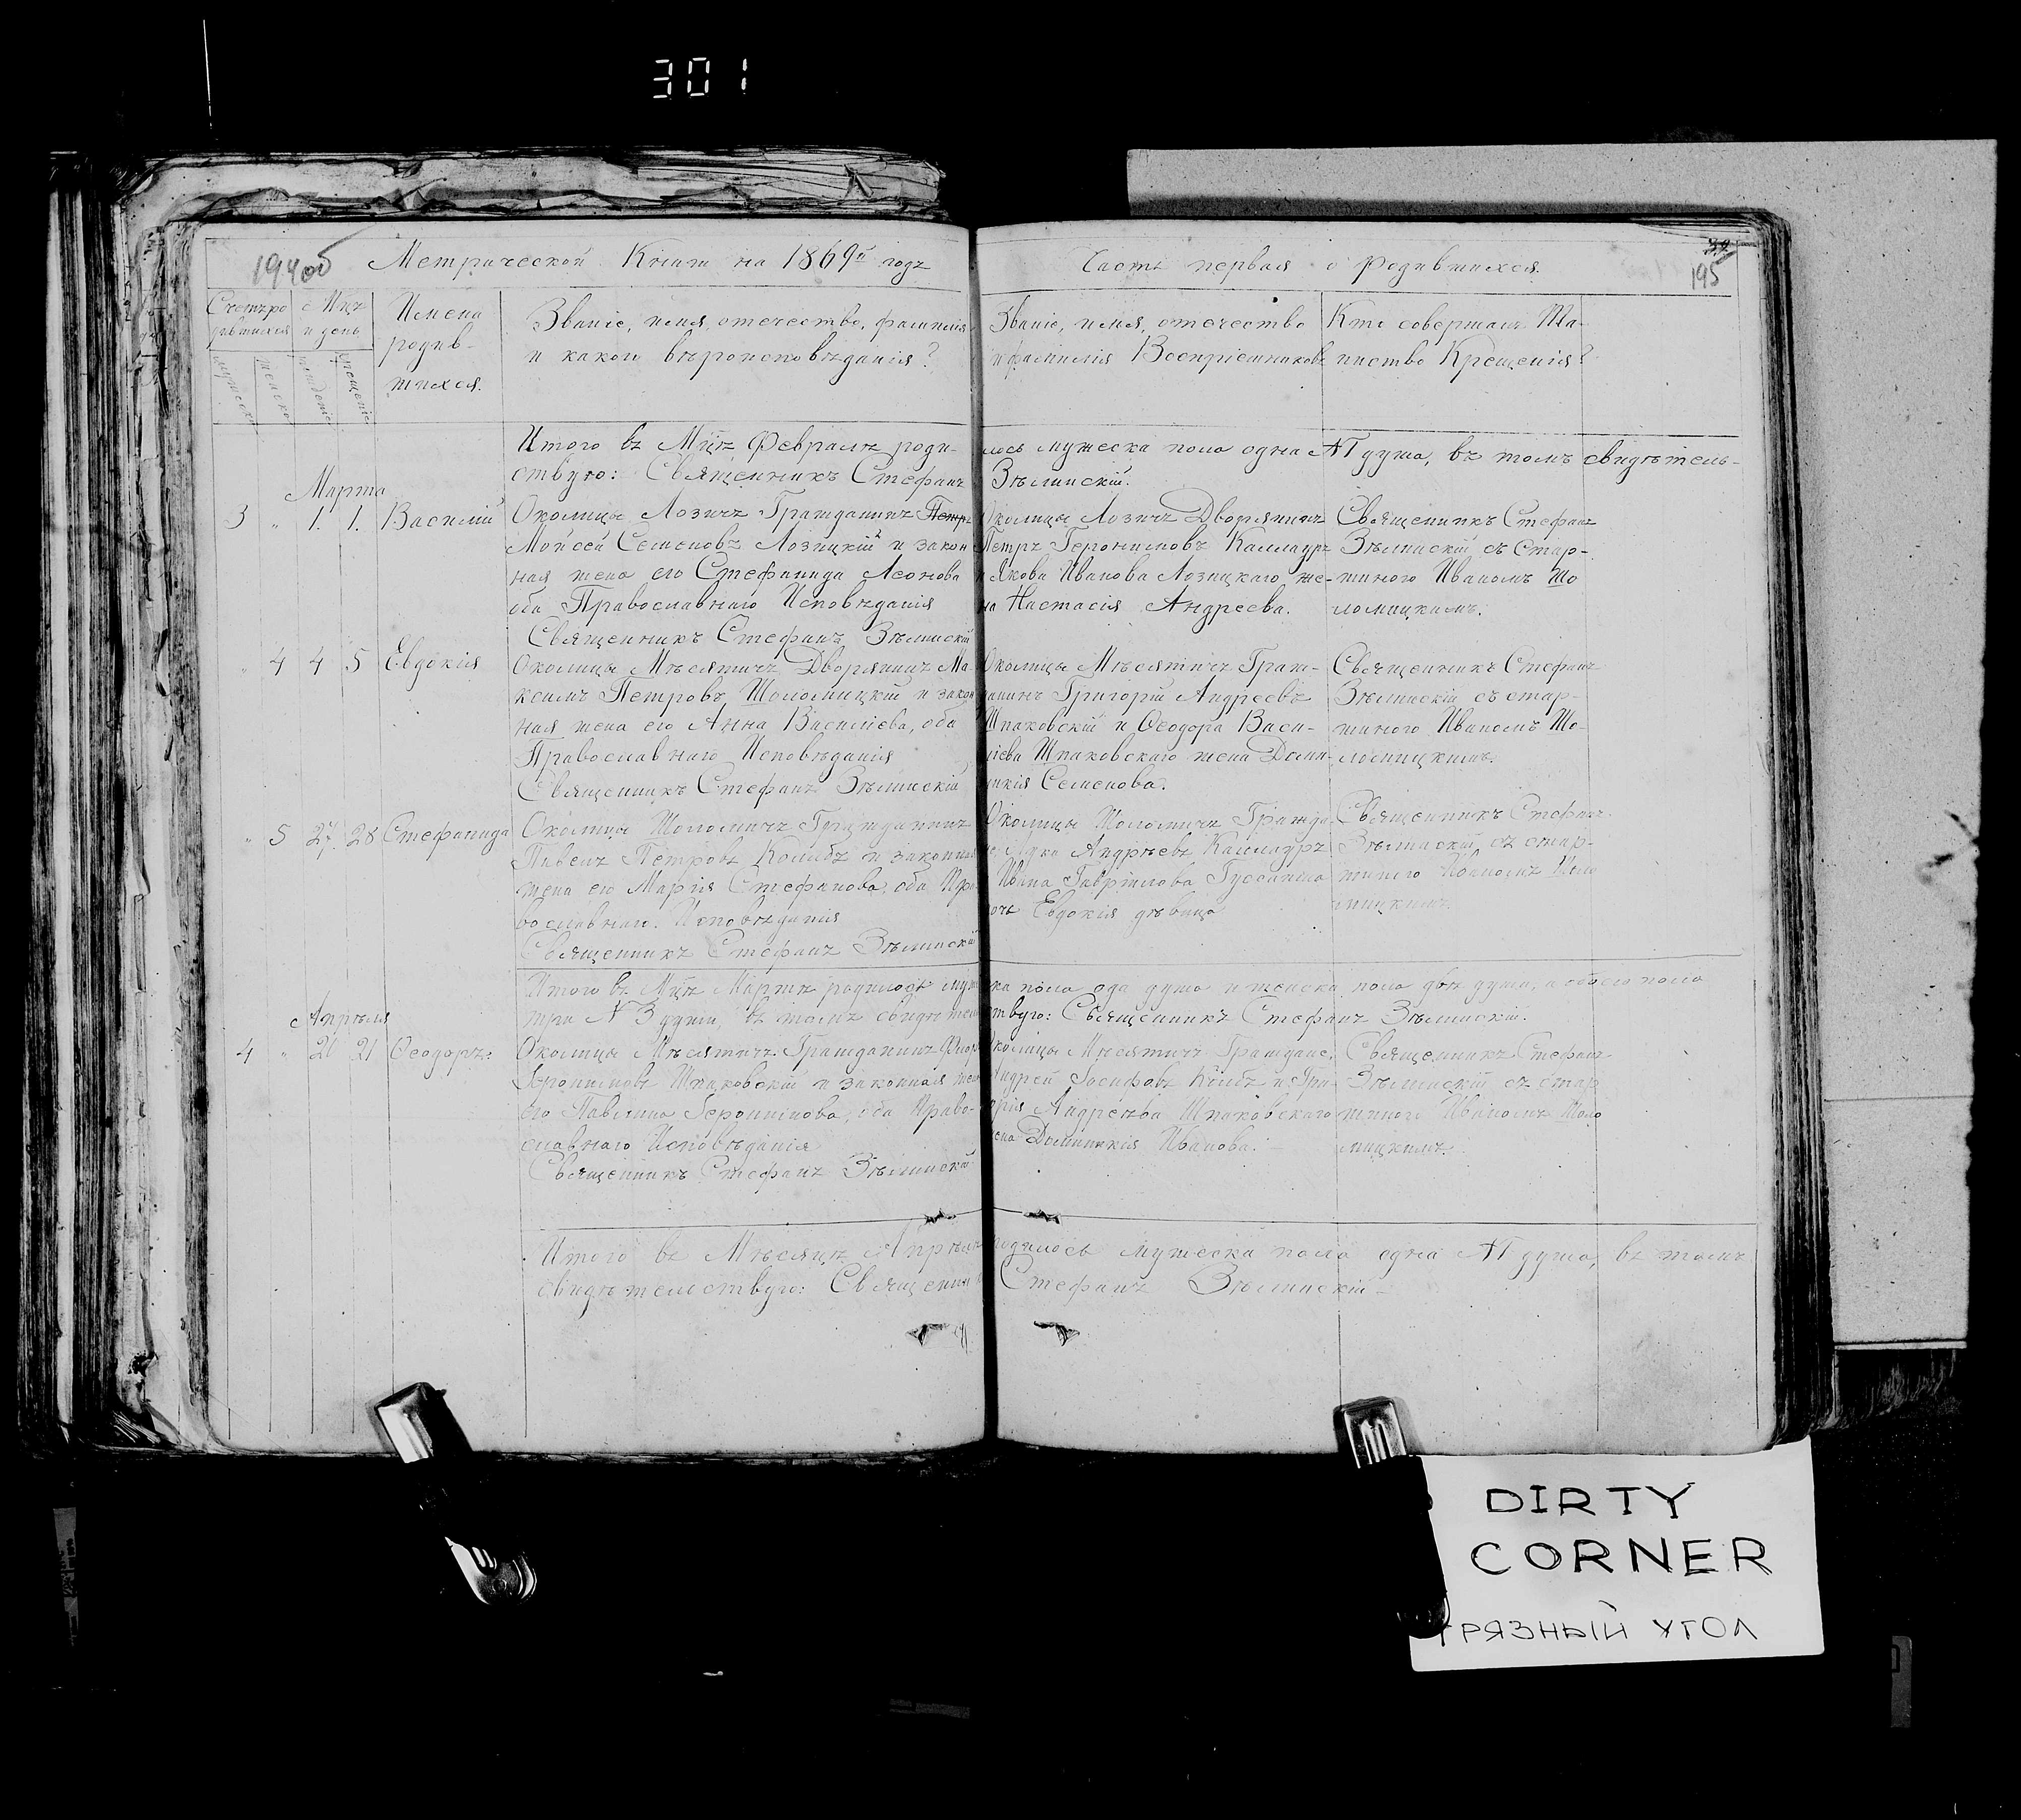 301
194об Метрической Книги на 1869й годъ
Часть первая о Родившихся.
34
195
Счетъ ро
дившихся
Мужеска
Женска
Мцъ
и день
рожденiе
крещенiе
Имена
родив-
шихся.
Званiе, имя, отечество, фамилiя
и какого вѣроисповѣданiя?
Званiе, имя, отечество
и фамилiя Воспрiемниковъ
Кто совершалъ Та-
инство Крещенiя?
Итого въ Мцѣ Февралѣ роди-
лось мужеска пола одна №1 душа, въ томъ свидѣтель-
ствую: Священникъ Стефанъ
Зѣлинскiй.
Марта
3 " 1. 1. Василiй
Околицы Лозичъ Гражданинъ Петръ
Мойсей Семеновъ Лозицкiй и закон
ная жена его Стефанида Леонова
оба Православнаго Исповѣданiя
Священникъ Стефанъ Зѣлинскiй
Околицы Лозичъ Дворянинъ
Петръ Iеронимовъ Каллауръ
и Якова Иванова Лозицкаго же-
на Настасiя Андреева.
Священникъ Стефанъ
Зѣлинскiй съ стар-
шиною Иваномъ Шо
ломицкимъ.
" 4 4 5 Евдокiя
Околицы Мѣсятичъ Дворянинъ Ма-
ксимъ Петровъ Шоломицкiй и закон
ная жена его Анна Василiева, оба
Православнаго Исповѣданiя
Священникъ Стефанъ Зѣлинскiй
Околицы Мѣсятичъ Граж-
данинъ Григорiй Андреевъ
Шпаковскiй и Ѳеодора Васи-
лiева Шпаковскаго жена Доми-
никiя Семенова.
Священникъ Стефанъ
Зѣлинскiй съ стар-
шиною Иваномъ Шо-
ломицкимъ.
" 5 27 28 Стефанида
Околицы Шоломичъ Гражданинъ
Павелъ Петровъ Колбъ и законная
жена его Марiя Стефанова, оба Пра
вославнаго Исповѣданiя
Священникъ Стефанъ Зѣлинскiй
Околицы Шоломичъ Гражда
Лука Андрѣевъ Каллауръ
Ивана Гаврiилова
дочь Евдокiя дѣвица
Священникъ Стефанъ
Зѣлинскiй съ стар-
шиною Иваномъ Шоло
мицкимъ.
Итого въ Мцѣ Мартѣ родилось муже
ска пола одa душа и женска пола двѣ души, а обоего пола
три №3 души въ томъ свидѣтель
ствую: Священникъ Стефанъ Зѣлинскiй.
Апрѣля
4 " 21 Ѳеодоръ.
Околицы Мѣсятичъ Гражданинъ
Iеронимовъ Шпаковскiй и законная жена
его Павлина Iеронимова, оба Право-
славнаго Исповѣданiя
Священникъ Стефанъ Зѣлинскiй
Околицы Мѣсятичъ Граждане,
Андрей Iосифовъ Колбъ и Гри-
горiя Андрѣева Шпаковскаго
жена Доминикiя Иванова.
Священникъ Стефанъ
Зѣлинскiй съ стар
шиною Иваномъ Шоло
мицкимъ.
Итого въ Мѣсяцѣ Апрѣлѣ
родилось мужеска пола одна №1 душа, въ томъ
свидѣтельствую: Священникъ
Стефанъ Зѣлинскiй
DIRTY
CORNER
ГРЯЗНЫЙ УГОЛ